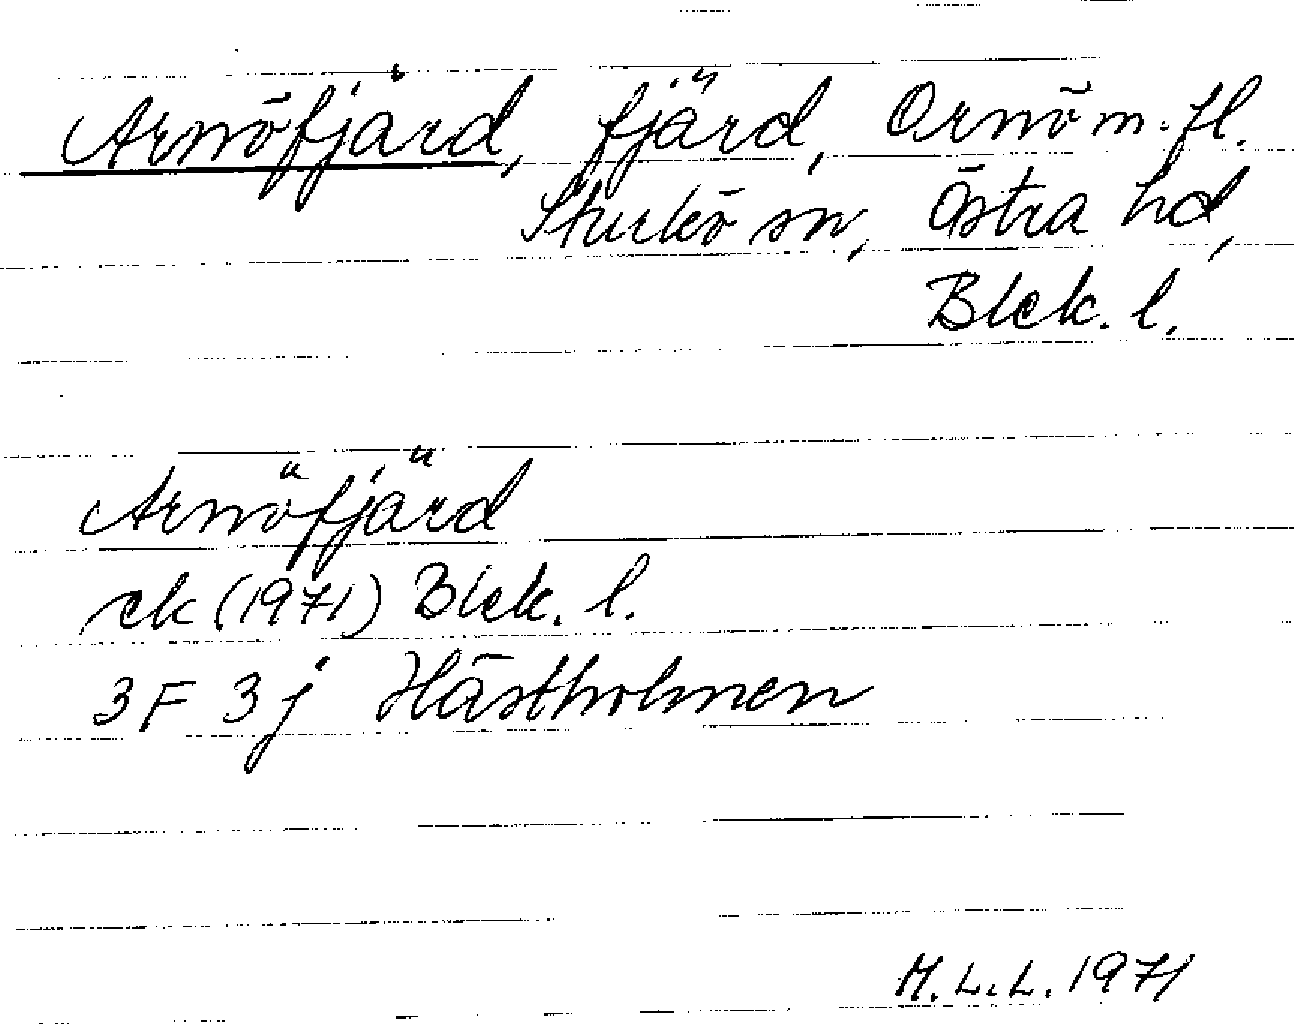 Arnöfjärd, fjärd, Ornö m. fl.
Sturkö sn, Östra hd,
Blek. l.
Arnöfjärd
ek (1971) Blek. l.
3F 3j Hästholmen
M.L.L. 1971